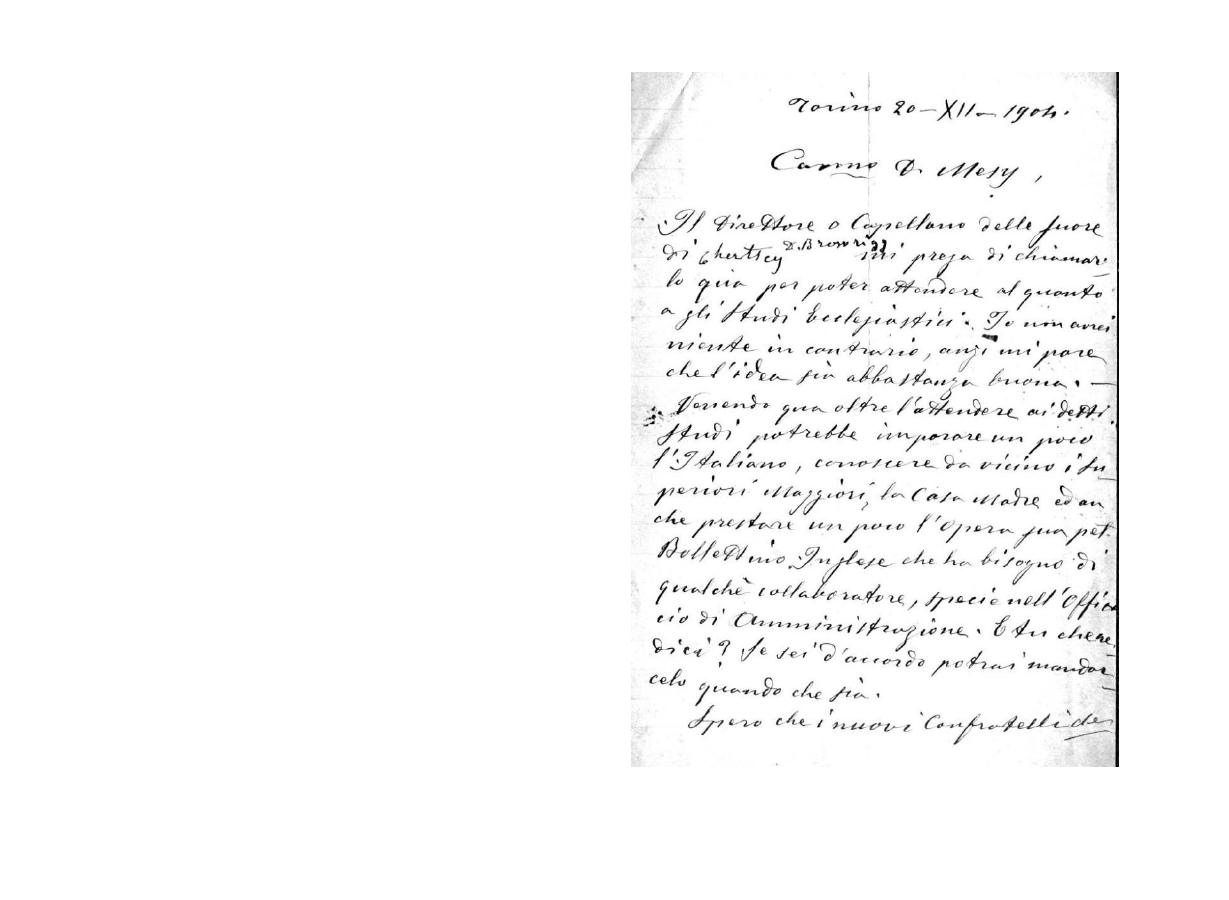 Torino 20-XII-1904.
Carmo D. Mesy,
Il Direttore o Capellano delle suore
D. Brownrigg
di Chertsey mi prega di chiamar-
lo qua per poter attendere al quanto
a gli studi Ecclesiastici. Io non avrei
niente in contrario, anzi mi pare
che l'idea sia abbastanza buona. —
Venendo qua oltre l'attendere ai detti
studi potrebbe imparare un poco
l'Italiano, conoscere da vicino i Su-
periori Maggiori, la Casa Madre ed an
che prestare un poco l'opera sua pel
Bollettino Inglese che ha bisogno di
qualchè collaboratore, specie nell'Offi
cio di Amministrazione. E tu che ne
dici? Se sei d'accordo potrai mandar-
celo quando che sia.
Spero che i nuovi Confratelli de